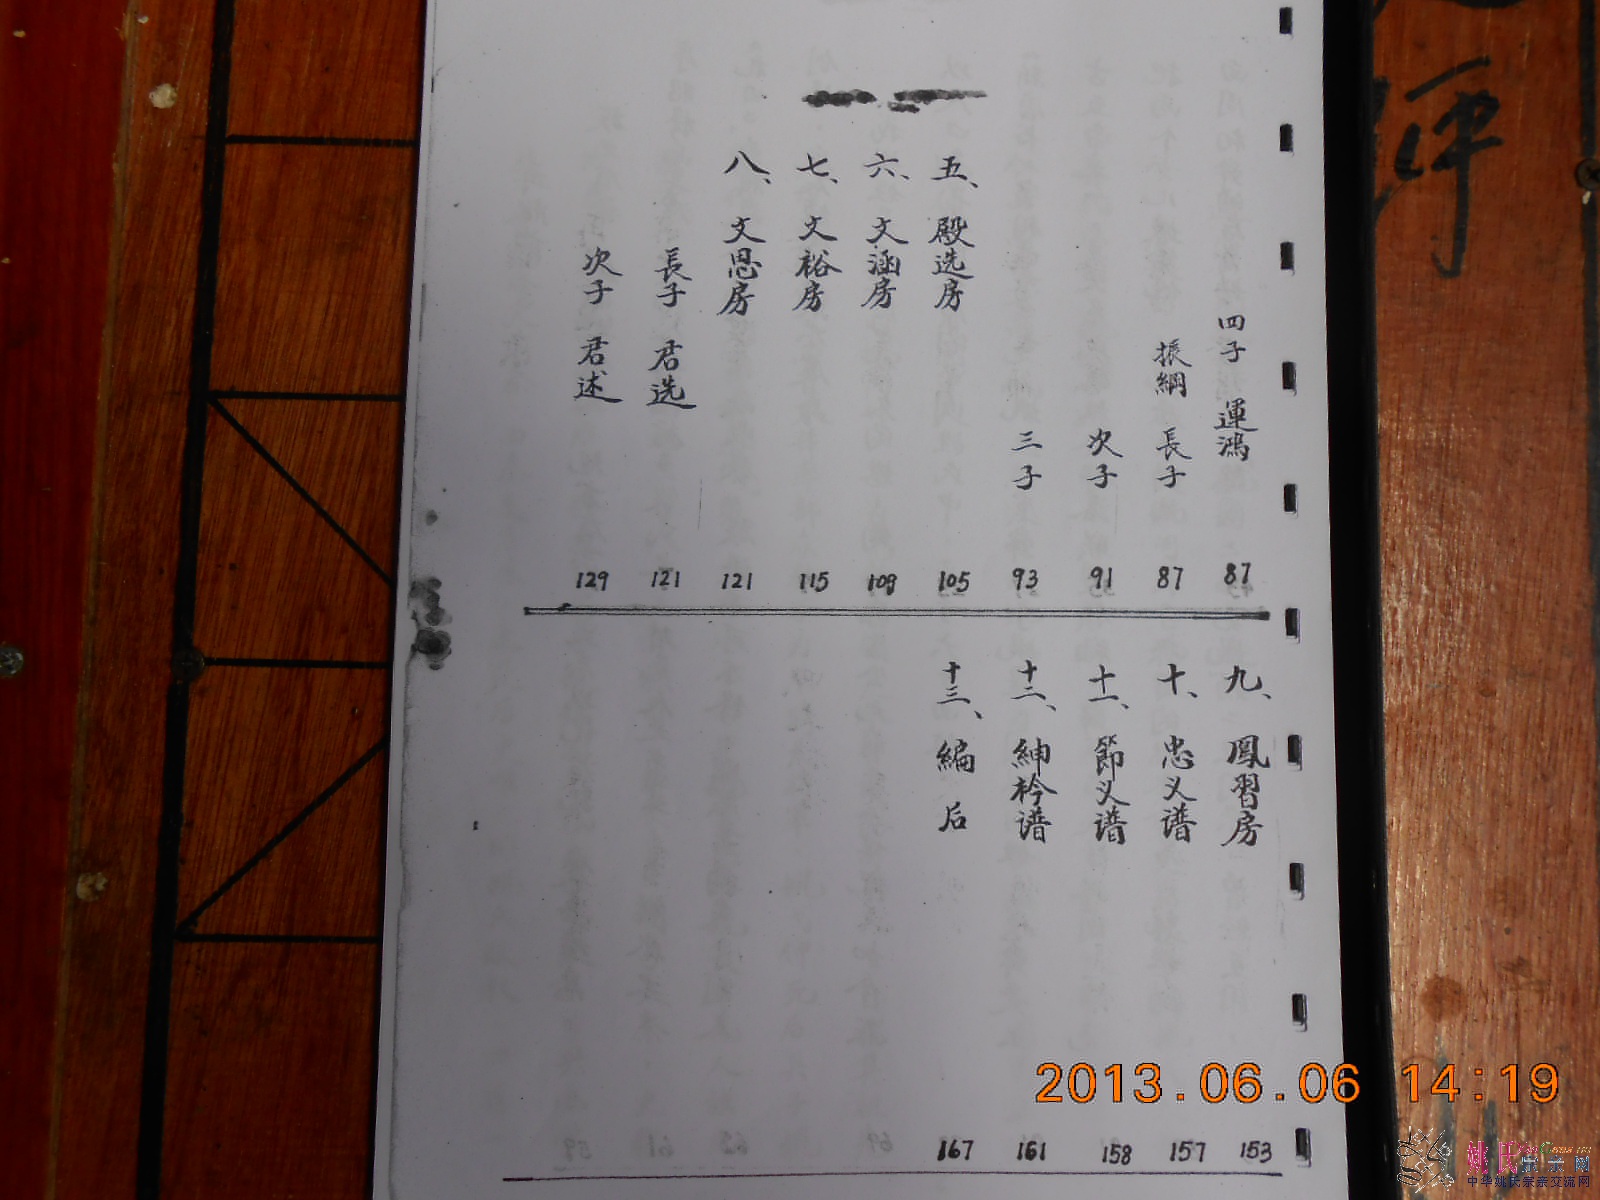 四子 運鴻 87
振綱 長子 87
次子 91
三子 93
五、殿选房 105
六、文涵房 109
七、文裕房 115
八、文恩房 121
長子 君选 121
次子 君述 129
九、鳳習房 153
十、忠义谱 157
十一、節义谱 158
十二、紳衿谱 161
十三、編后 167
2013.06.06 14:19
姚氏宗亲网
中华姚氏宗亲交流网